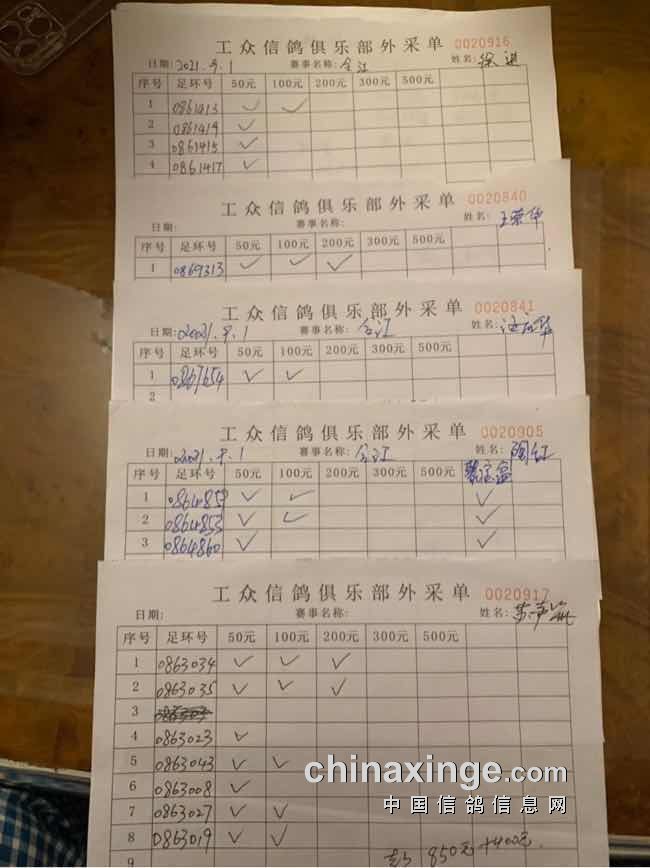 工众信鸽俱乐部外采单 0020916
日期: 2021.9.1 赛事名称: 合江 姓名: 徐进
序号 足环号 50元 100元 200元 300元 500元
1 0861413 ✓ ✓
2 0861419 ✓
3 0861415 ✓
4 0861417 ✓
工众信鸽俱乐部外采单 0020840
日期: 赛事名称: 姓名: 王荣华
序号 足环号 50元 100元 200元 300元 500元
1 0869313 ✓ ✓ ✓
工众信鸽俱乐部外采单 0020841
日期: 2021.9.1 赛事名称: 合江 姓名:
序号 足环号 50元 100元 200元 300元 500元
1 0867654 ✓ ✓
2
工众信鸽俱乐部外采单 0020905
日期: 2021.9.1 赛事名称: 合江 姓名: 陶红
序号 足环号 50元 100元 200元 300元 500元
1 ✓ ✓ ✓
2 0864853 ✓ ✓ ✓
3 0864860 ✓ ✓
工众信鸽俱乐部外采单 0020917
日期: 赛事名称: 姓名:
序号 足环号 50元 100元 200元 300元 500元
1 0863034 ✓ ✓ ✓
2 0863035 ✓ ✓ ✓
3
4 0863023 ✓
5 0863043 ✓ ✓
6 0863008 ✓
7 0863027 ✓ ✓
8 0863019 ✓ ✓
9 850元+400元
chinaxinge.com
中国信鸽信息网